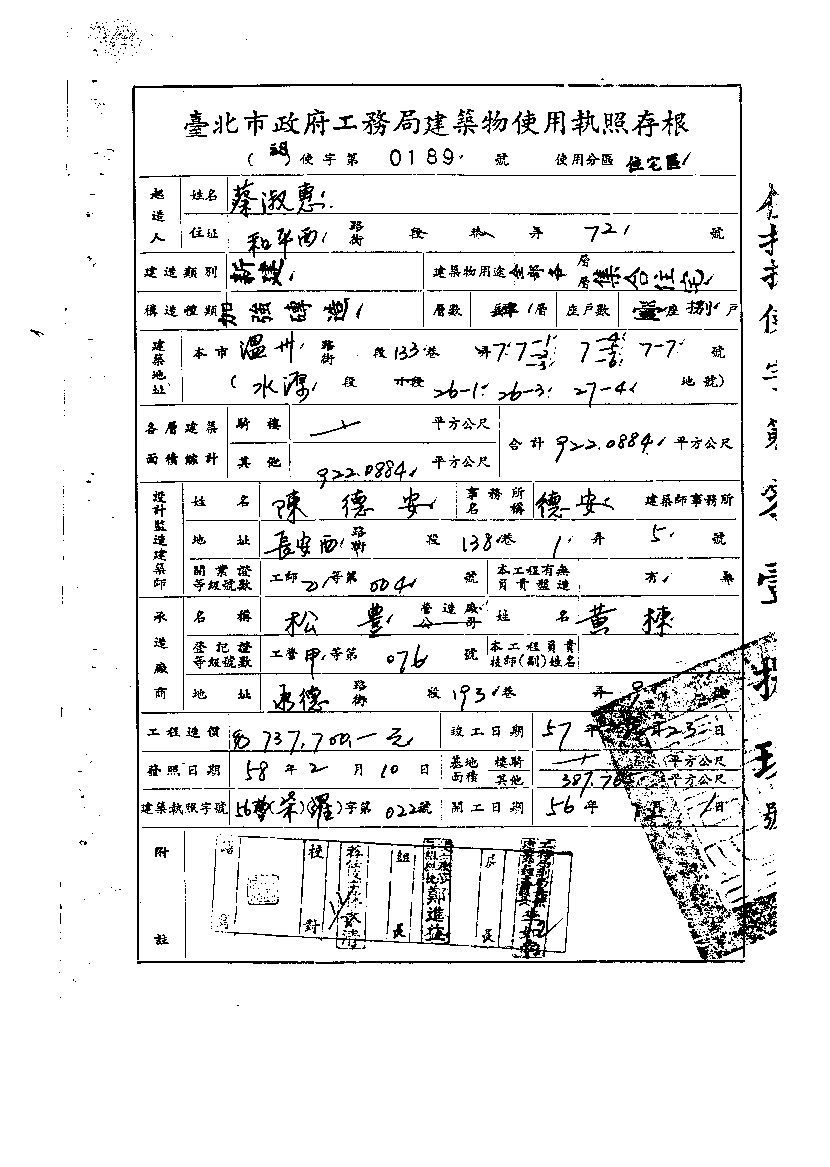 臺北市政府工務局建築物使用執照存根
( ) 使字第 0189 號 使用分區 住宅區
起造人 姓名 蔡淑惠
住址 和平西 路街 段 巷 弄 72 號
建造類別 新建 建築物用途 全部 層層 集合住宅
構造種類 加強磚造 層數 肆 層 座戶數 座 捌 戶
建築地址 本市 溫州 路街 段 133 巷 弄 7. 7-1 -2 -3 7-4 -5 -6 7-7 號
( 水源 段 小段 26-1. 26-3. 27-4 地號)
各層建築面積總計 騎樓 平方公尺 合計 922.0884 平方公尺
其他 922.0884 平方公尺
設計監造建築師 姓名 陳德安 事務所名稱 德安 建築師事務所
地址 長安西 路街 段 138 巷 1 弄 5 號
開業證等級號數 工師 等第 004 號 本工程有無負責監造 有 無
承造廠商 名稱 松豊 營造廠公司 姓名 黃棟
登記證等級號數 工營 甲 等第 076 號 本工程負責技師(副)姓名
地址 承德 路街 段 193 巷 弄 9
工程造價 737,700 元 竣工日期 57 年 月 23 日
發照日期 58 年 2 月 10 日 基地面積 樓騎 平方公尺
其他 平方公尺
建築執照字號 56 字第 022 號 開工日期 56 年 月 1 日
附註
校對 組長 長